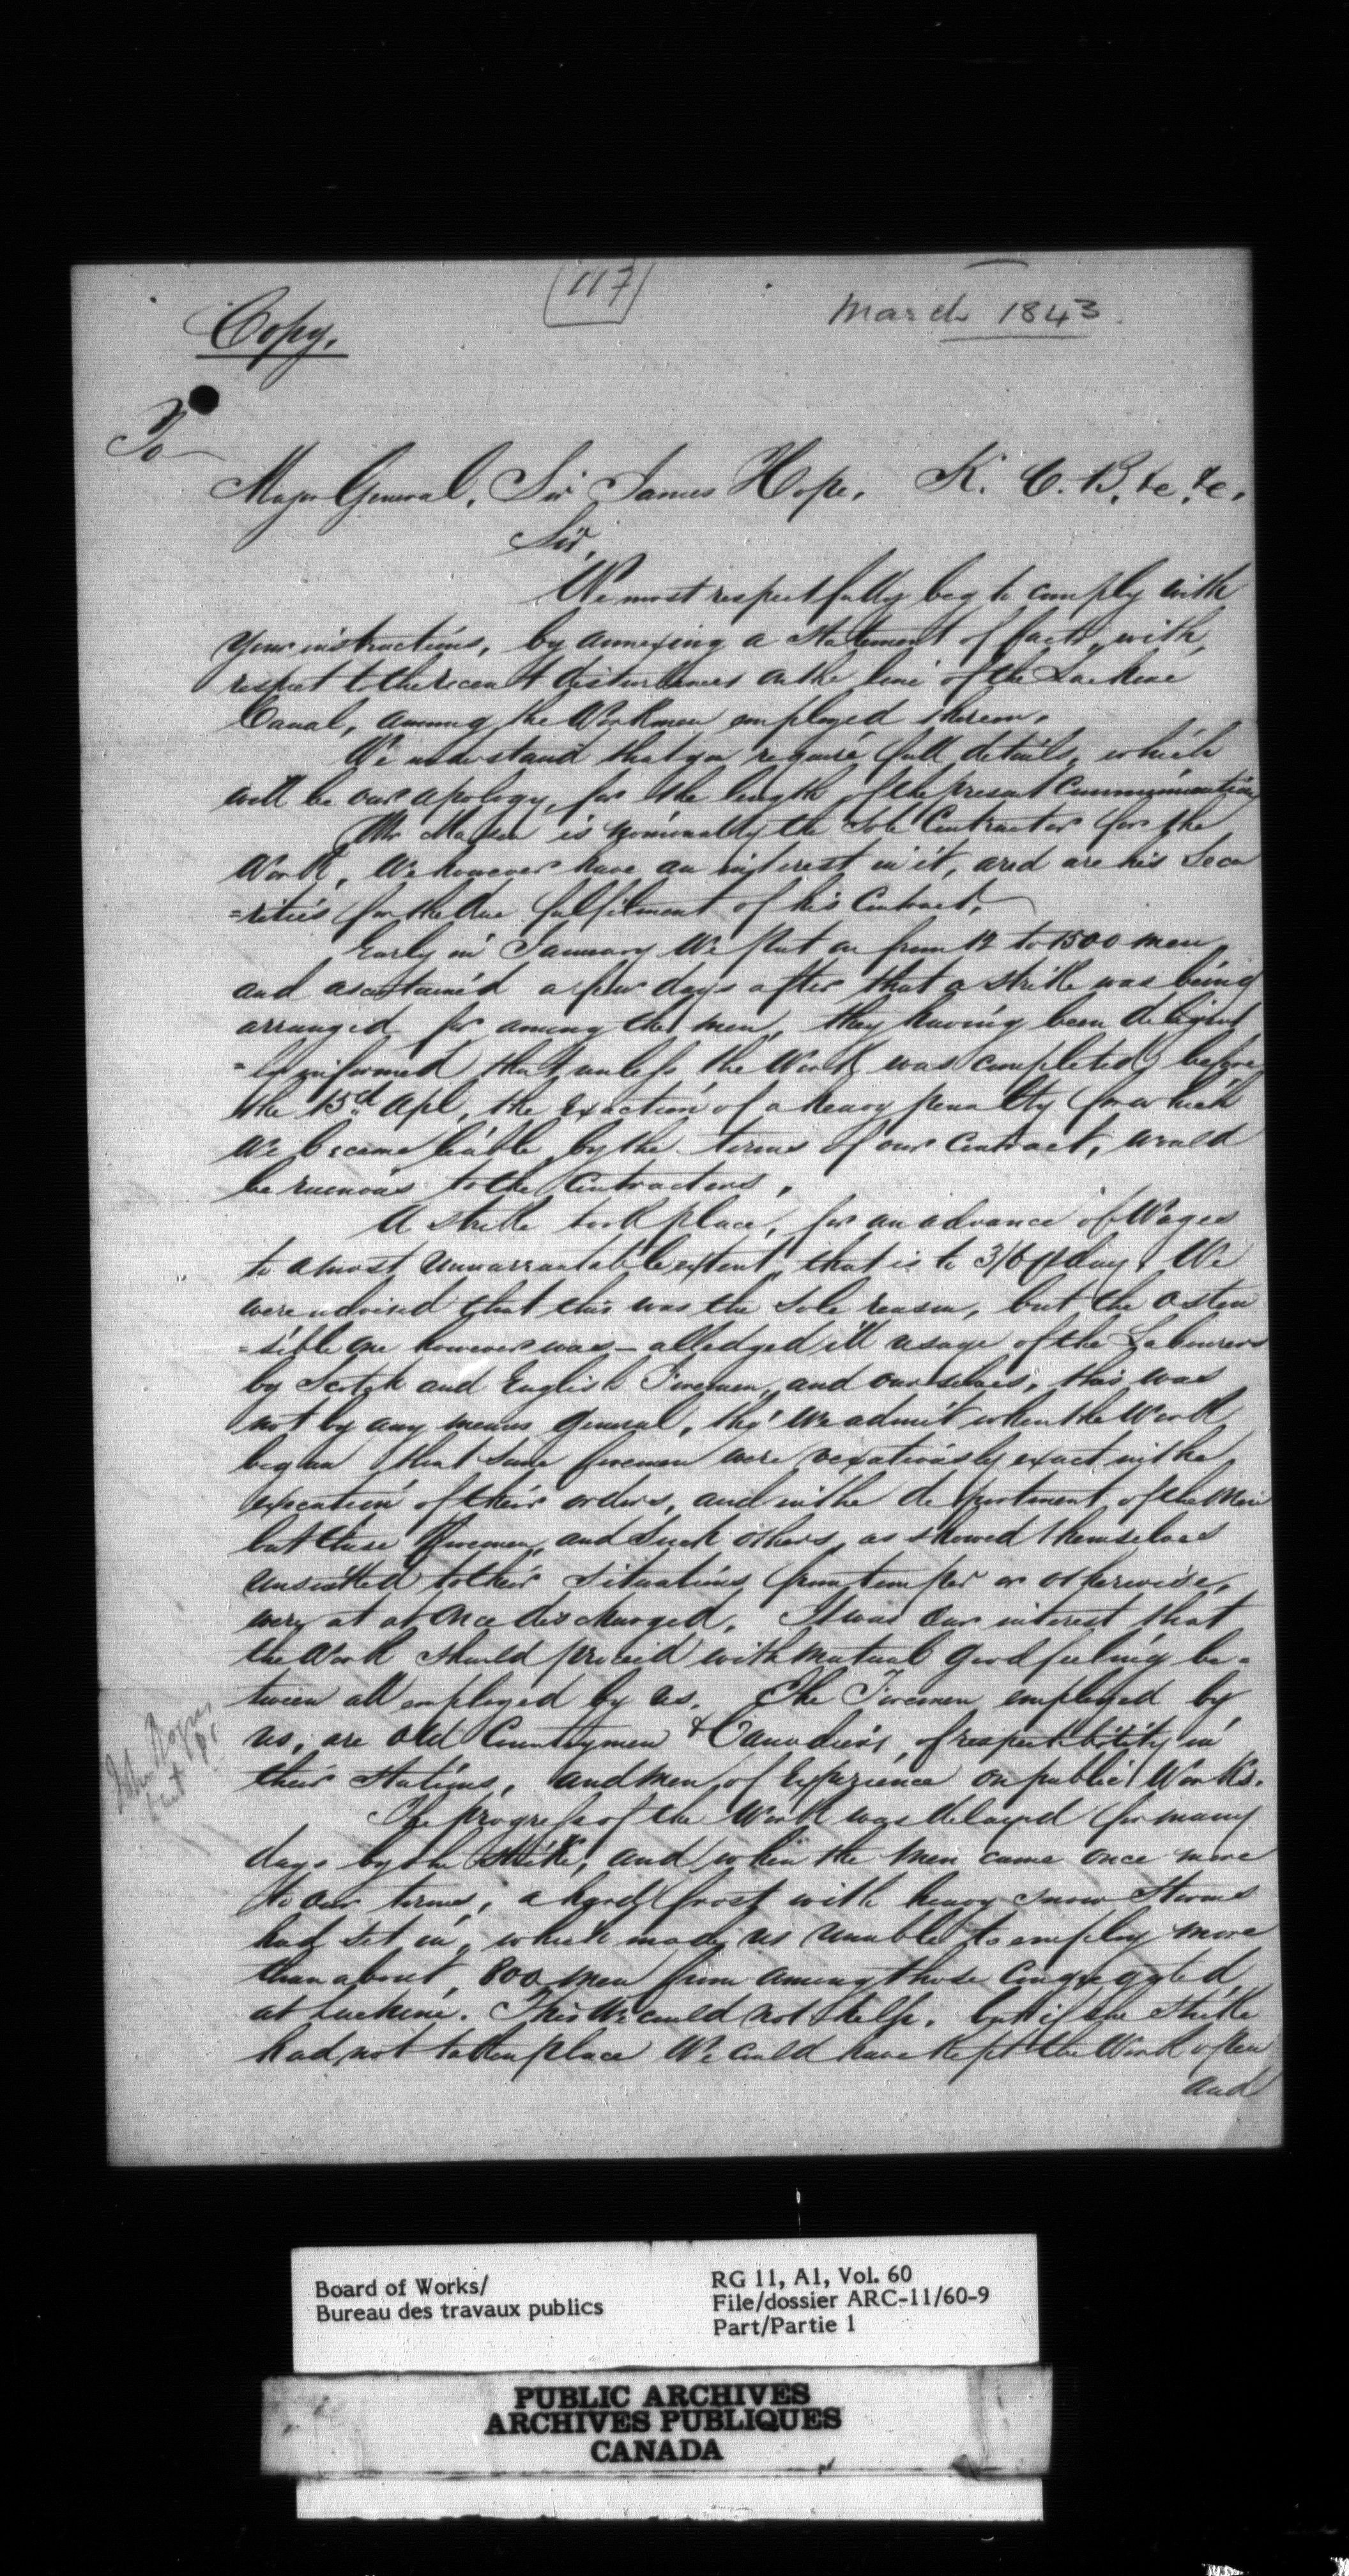 117
March 1843.
Copy.
To
Major General, Sir James Hope, K. C. B. &c. &c.
Sir,
We most respectfully beg to comply with
your instructions, by annexing a statement of facts with
respect to the recent disturbances on the line of the Lachine
Canal, among the Workmen employed thereon.
We understand that you require full details, which
will be our apology, for the length of the present Communication
Mr Mason is nominally the Sole Contractor for the
Work, We however have an interest in it, and are his Secu
=rities for the due fulfilment of his Contract.
Early in January We put on from 12 to 1500 men
and ascertained a few days after that a strike was being
arranged for among the men, they having been diligent
=ly informed that unless the Work was completed before
the 15d Apl, the exaction of a heavy penalty for which
We became liable by the terms of our Contract, would
be ruinous to the Contractors.
A strike took place, for an advance of Wages
to a most unwarrantable extent, that is to 3/6 p day. We
were advised that this was the Sole reason, but the osten
=sible one however was – alledged ill usage of the Labourers
by Scotch and English Foremen, and ourselves, this was
not by any means general, tho' We admit when the Work
began that some foremen were vexatiously exact in the
execution of their orders, and in the deportment of the Men
but these Foremen, and Such others, as showed themselves
unsuited to their Situations from temper or otherwise,
were at at once discharged. It was our interest that
the Work should proceed with mutual good feeling be=
tween all employed by us. The Foremen employed by
us, are Old Countrymen & Canadians, of respectibility in
their Stations, and men of Experience on public Works.
The progress of the Work was delayed for many
days by the Strike, and when the men came once more
to our terms, a hard frost with heavy snow Storms
had set in, which made us unable to employ more
than about 800 men from among those Congregated
at Lachine. This We could not help. but if the Strike
had not taken place We could have Kept the Work open
and
Board of Works/
Bureau des travaux publics
RG 11, A1, Vol. 60
File/dossier ARC-11/60-9
Part/Partie 1
PUBLIC ARCHIVES
ARCHIVES PUBLIQUES
CANADA